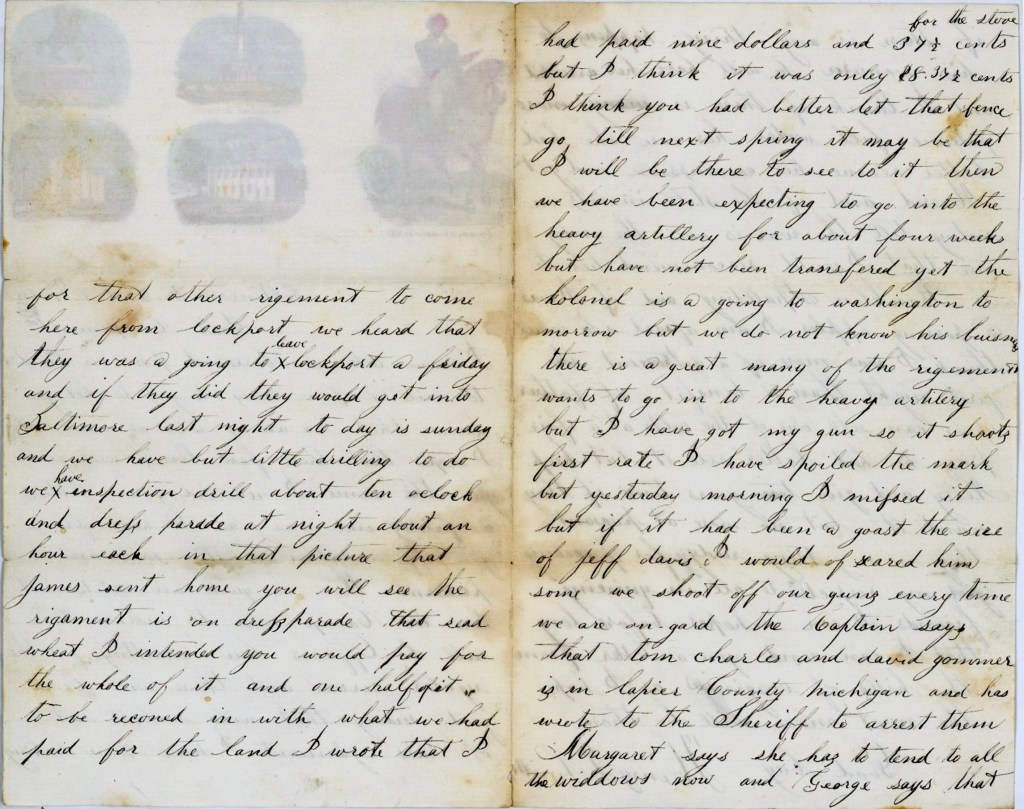 for that other rigement to come
here from lockport we heard that
they was a going to leave lockport a friday
and if they did they would get into
Baltimore last night to day is sunday
and we have but little drilling to do
we have inspection drill about ten oclock
and dress parade at night about an
hour each in that picture that
james sent home you will see the
rigament is on dress parade that sead
wheat I intended you would pay for
the whole of it and one half of it
to be reconed in with what we had
paid for the land I wrote that I
for the stove
had paid nine dollars and 37½ cents
but I think it was onley $8.37½ cents
I think you had better let that fence
go till next spring it may be that
I will be there to see to it then
we have been expecting to go into the
heavy artillery for about four weeks
but have not been transfered yet the
kolonel is a going to washington to
morrow but we do not know his
there is a great many of the rigement
wants to go in to the heavy artilery
but I have got my gun so it shoots
first rate I have spoiled the mark
but yesterday morning I missed it
but if it had been a goast the size
of jeff davis I would of scared him
some we shoot off our guns every time
we are on gard the Captain says
that tom charles and david gommer
is in lapier County Michigan and has
wrote to the Sheriff to arrest them
Margaret says she has to tend to all
the widdows now and George says that